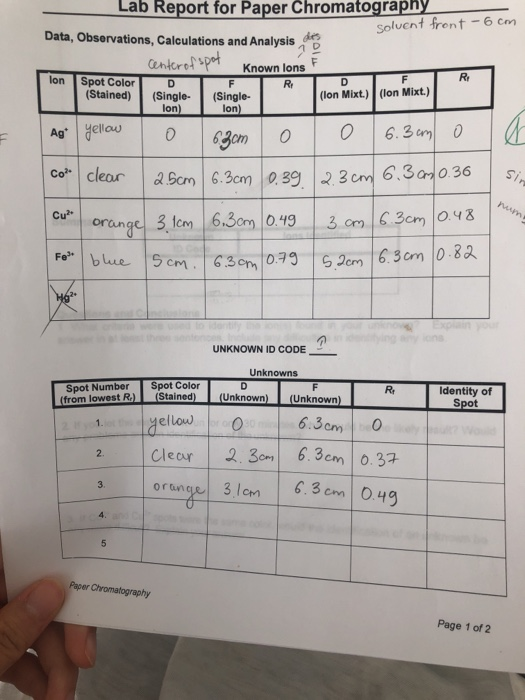 Lab Report for Paper Chromatography
solvent front - 6 cm
Data, Observations, Calculations and Analysis
D
center of spot Known Ions F
Ion Spot Color (Stained) D (Single-Ion) F (Single-Ion) Rf D (Ion Mixt.) F (Ion Mixt.) Rf
Ag+ yellow 0 6.3cm 0 0 6.3cm 0
Co2+ clear 2.5cm 6.3cm 0.39 2.3cm 6.3cm 0.36
Cu2+ orange 3.1cm 6.3cm 0.49 3 cm 6.3cm 0.48
Fe3+ blue 5cm. 6.3cm 0.79 5.2cm 6.3cm 0.82
Hg2+
UNKNOWN ID CODE ?
Unknowns
Spot Number (from lowest Rf) Spot Color (Stained) D (Unknown) F (Unknown) Rf Identity of Spot
1. yellow 0 6.3cm 0
2. Clear 2.3cm 6.3cm 0.37
3. orange 3.1cm 6.3cm 0.49
4.
5
Paper Chromatography
Page 1 of 2